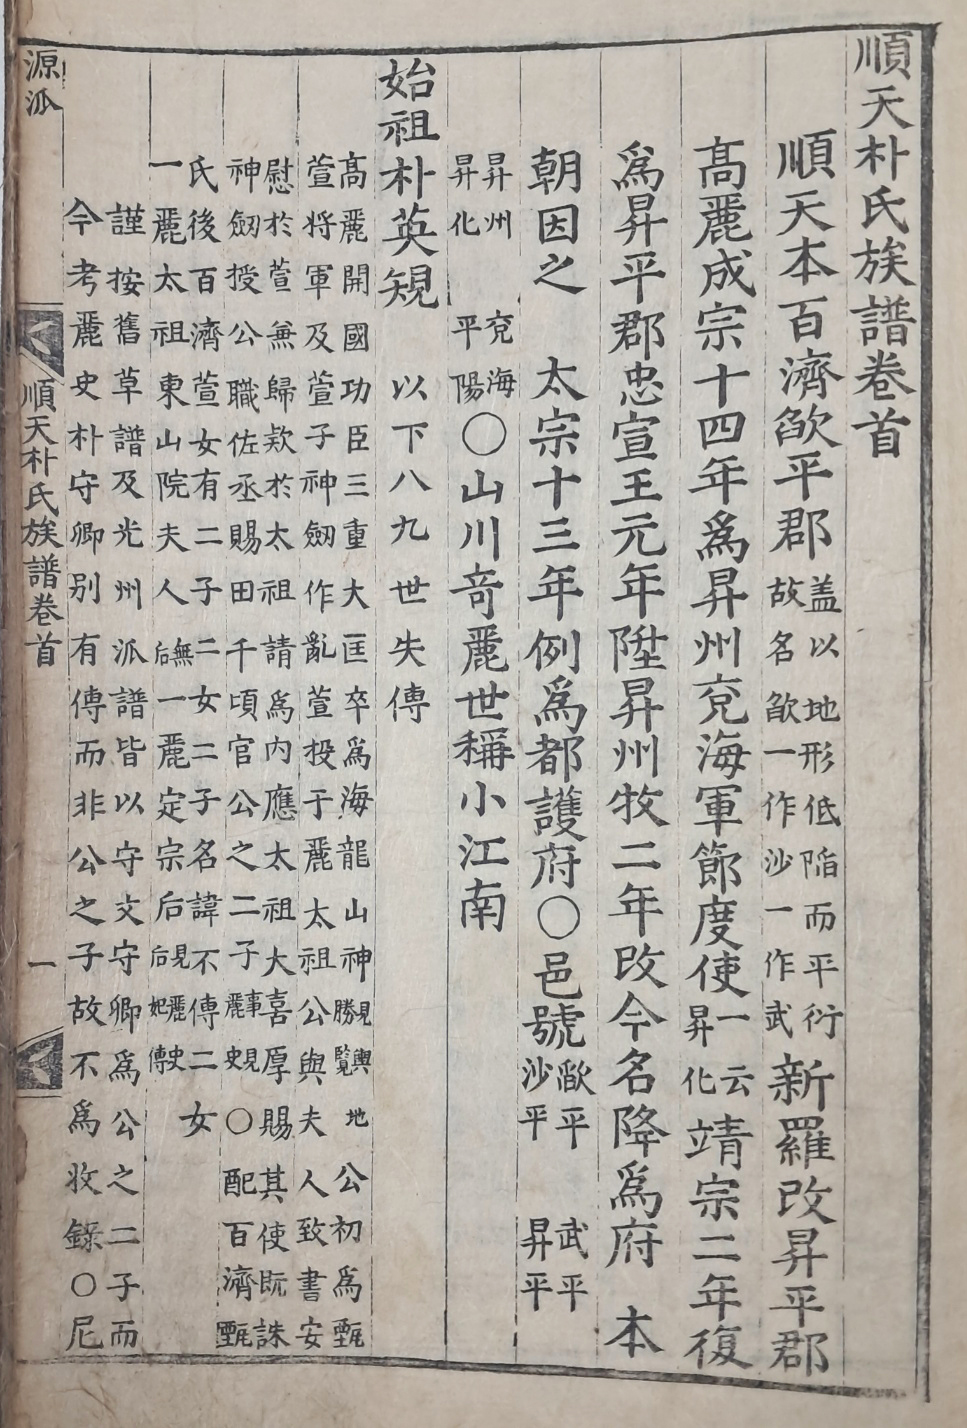 順天朴氏族譜卷首
順天本百濟欿平郡盖以地形低陷而平衍故名欿一作沙一作武新羅改昇平郡
高麗成宗十四年爲昇州兗海軍節度使一云昇化靖宗二年復
爲昇平郡忠宣王元年陞昇州牧二年改今名降爲府 本
朝因之 太宗十三年例爲都護府〇邑號歃平沙平 武平昇平
昇州昇化 兗海平陽〇山川竒麗世稱小江南
始祖朴英規 以下八九世失傳
高麗開國功臣三重大匡卒爲海龍山神見輿地勝覧公初爲甄
萱将軍及萱子神劔作亂萱投于麗太祖公與夫人致書安
慰於萱兼歸欵於太祖請爲内應太祖大喜厚賜其使旣誅
神劔授公職佐丞賜田千頃官公之二子事見麗史〇配百濟甄
氏後百濟萱女有二子二女二子名諱不傳二女
一麗太祖東山院夫人無后一麗定宗后見麗史后妃傳
謹按舊草譜及光州派譜皆以守文守卿爲公之二子而
今考麗史朴守卿别有傳而非公之子故不爲收錄〇尼
源派
順天朴氏族譜卷首
一